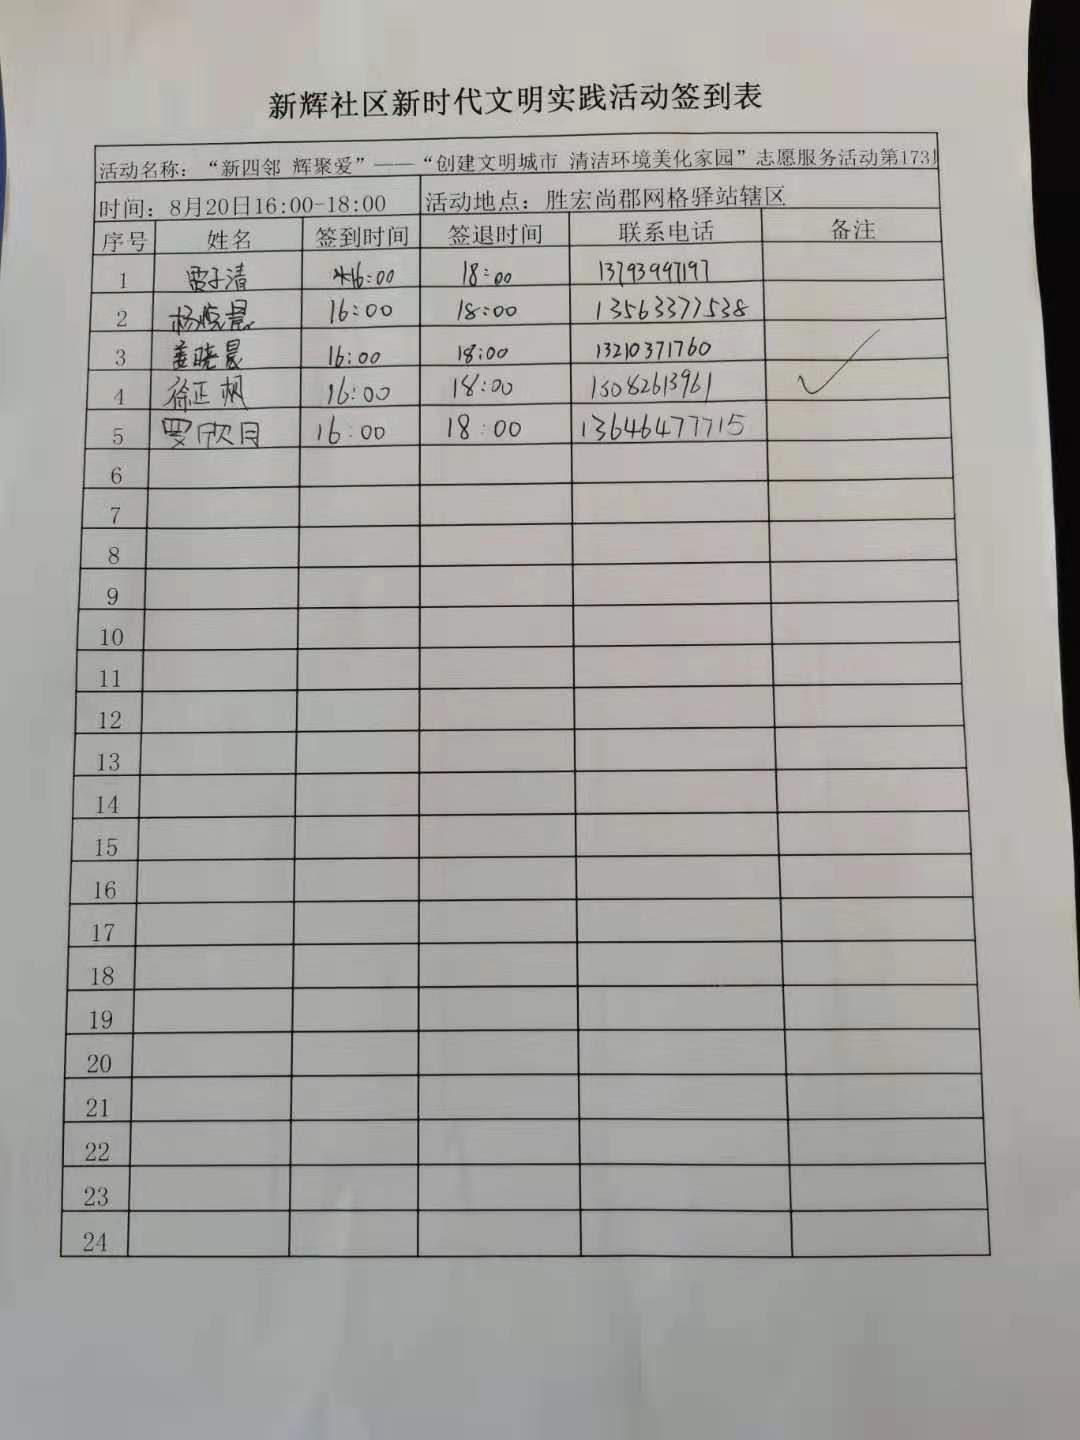 新辉社区新时代文明实践活动签到表
活动名称：“新四邻 辉聚爱”——“创建文明城市 清洁环境美化家园”志愿服务活动第173
时间：8月20日16:00-18:00 活动地点：胜宏尚郡网格驿站辖区
序号 姓名 签到时间 签退时间 联系电话 备注
1 雷子清 16:00 18:00 13793997197
2 杨悦晨 16:00 18:00 13563377538
3 姜晓晨 16:00 18:00 13210371760
4 徐正帆 16:00 18:00 13082613961 ✓
5 罗欣月 16:00 18:00 13646477715
6
7
8
9
10
11
12
13
14
15
16
17
18
19
20
21
22
23
24